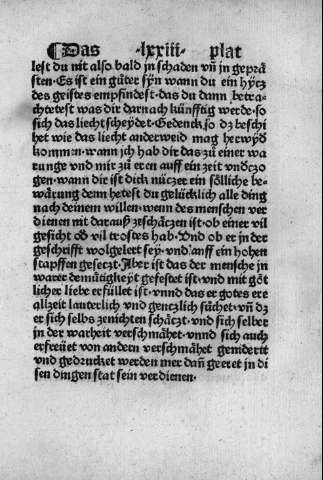 ¶ Das ·lxxiii· plat
lest du nit also bald in schaden vn̄ in geprä
sten·Es ist ein gůter syn wann du ein hytz
des geistes empfindest·das du dann betra-
chtetest was dir darnach künfftig werde·so
sich das liecht scheydet·Gedenck so dz beschi
het wie das liecht anderweid mag herwyd
kommen·wann ich hab dir das zů einer wa
rnunge vnd mir zů eren auff ein zeit vndzo
gen·wann dir ist dick nützer ein sölliche be-
wärung denn hetest du gelücklich alle ding
nach deinem willen·wenn des menschen ver
dienen nit darauß zeschäczen ist·ob einer vil
gesicht od̄ vil trostes hab·Vnd ob er in der
geschrifft wolgelert sey·vnd auff ein hohen
stapffen gesetzt·Aber ist das der mensche in
warer demůtigkeyt gefestet ist·vnd mit göt
licher liebe erfüllet ist·vnnd das er gotes ere
allzeit lauterlich vnd genczlich sůchet·vn̄ dz
er sich selbs zenichten schäczt·vnd sich selber
in der warheit verschmähet·vnnd sich auch
erfreüet von andern verschmähet genidert
vnd gedzucket werden mer dan̄ geeret in di
sen dingen stat sein verdienen·